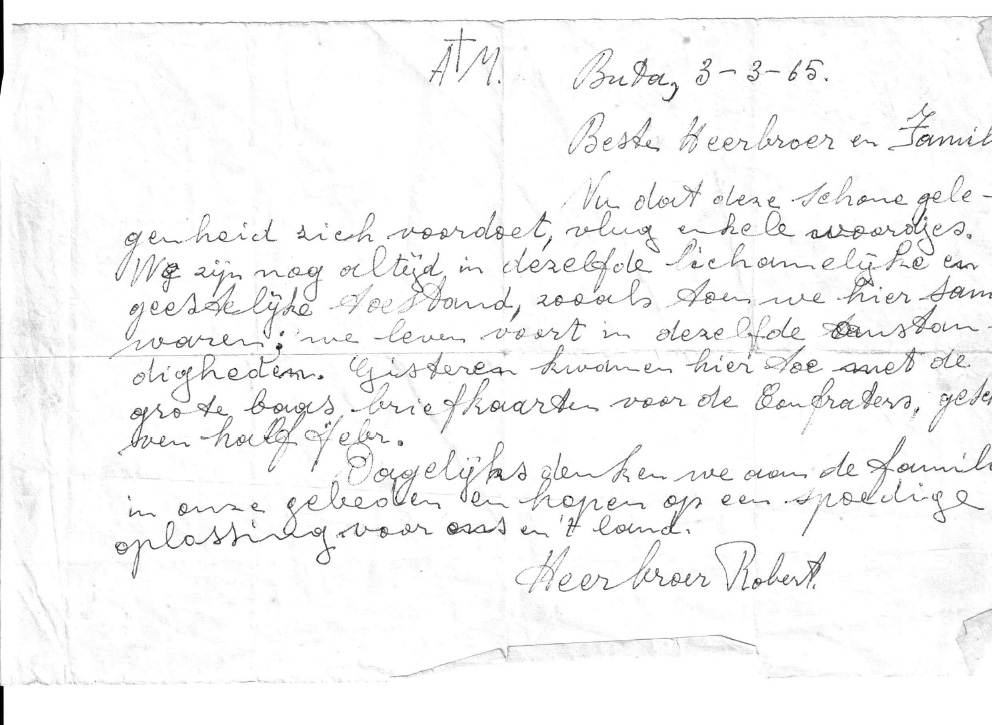 A†M.
Buta, 3-3-65.
Beste Heerbroer en Famil
Nu dat deze schone gele-
genheid zich voordoet, vlug enkele woordjes.
We zijn nog altijd in dezelfde lichamelijke en
geestelijke toestand, zooals toen we hier sam
waren; we leven voort in dezelfde omstan-
digheden. Gisteren kwamen hier toe met de
grote baas briefkaarten voor de Confraters, gesch
ven half Febr.
Dagelijks denken we aan de famili
in onze gebeden en hopen op een spoedige
oplossing voor ons en 't land.
Heerbroer Robert.